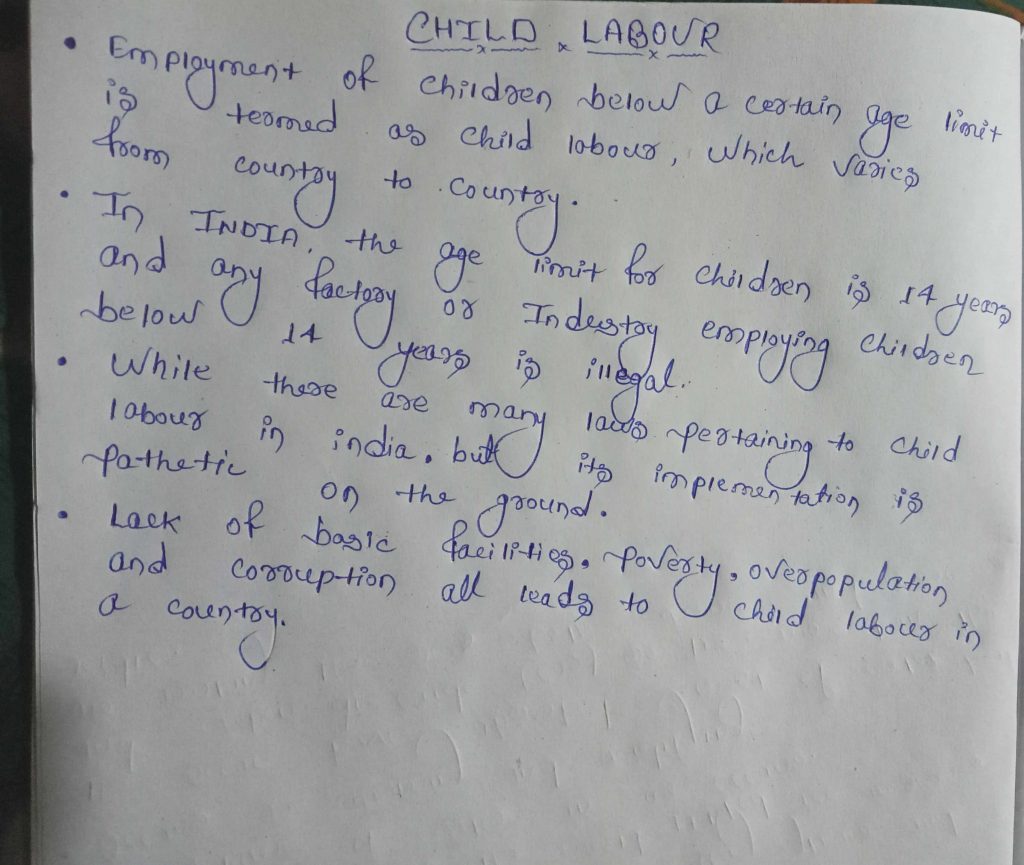 CHILD LABOUR
• Employment of children below a certain age limit
is termed as child labour, which varies
from country to country.
• In INDIA, the age limit for children is 14 years
and any factory or Industry employing children
below 14 years is illegal.
• While there are many laws pertaining to child
labour in india, but its implementation is
pathetic on the ground.
• Lack of basic facilities, poverty, overpopulation
and corruption all leads to child labour in
a country.